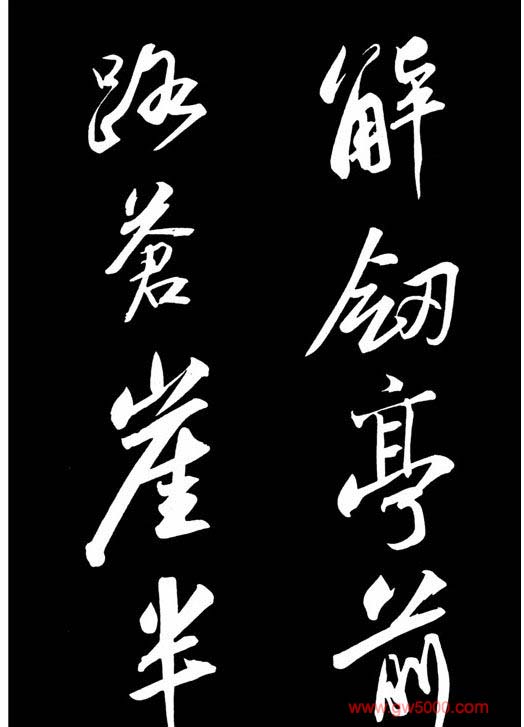 解剑亭前
路苍崖半
www.gw5000.com